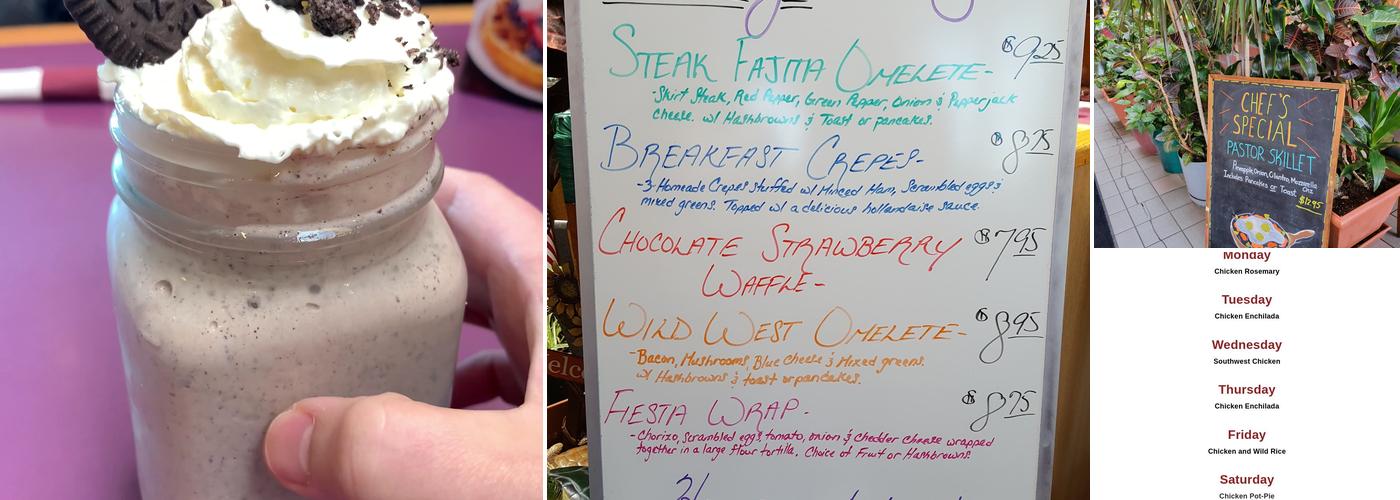 STEAK FAJITA OMELETE- $9.25
-Skirt Steak, Red Pepper, Green Pepper, Onion & Pepperjack
cheese. w/ Hashbrowns & Toast or pancakes.
BREAKFAST CREPES- $8.75
-3 Homeade Crepes stuffed w/ Minced Ham, Scrambled eggs &
mixed greens. Topped w/ a delicious hollandaise sauce.
CHOCOLATE STRAWBERRY $7.95
WAFFLE-
WILD WEST OMELETE- $8.95
-Bacon, Mushrooms, Blue Cheese & Mixed greens.
w/ Hashbrowns & toast or pancakes.
FIESTA WRAP- $8.75
-Chorizo, scrambled eggs, tomato, onion & Chedder cheese wrapped
together in a large flour tortilla. Choice of Fruit or Hashbrowns.
elco
CHEF'S
SPECIAL
PASTOR SKILLET
Pineapple, Onion, Cilantro, Mozzarella
Chz
Includes Pancakes or Toast
$12.95
Monday
Chicken Rosemary
Tuesday
Chicken Enchilada
Wednesday
Southwest Chicken
Thursday
Chicken Enchilada
Friday
Chicken and Wild Rice
Saturday
Chicken Pot-Pie